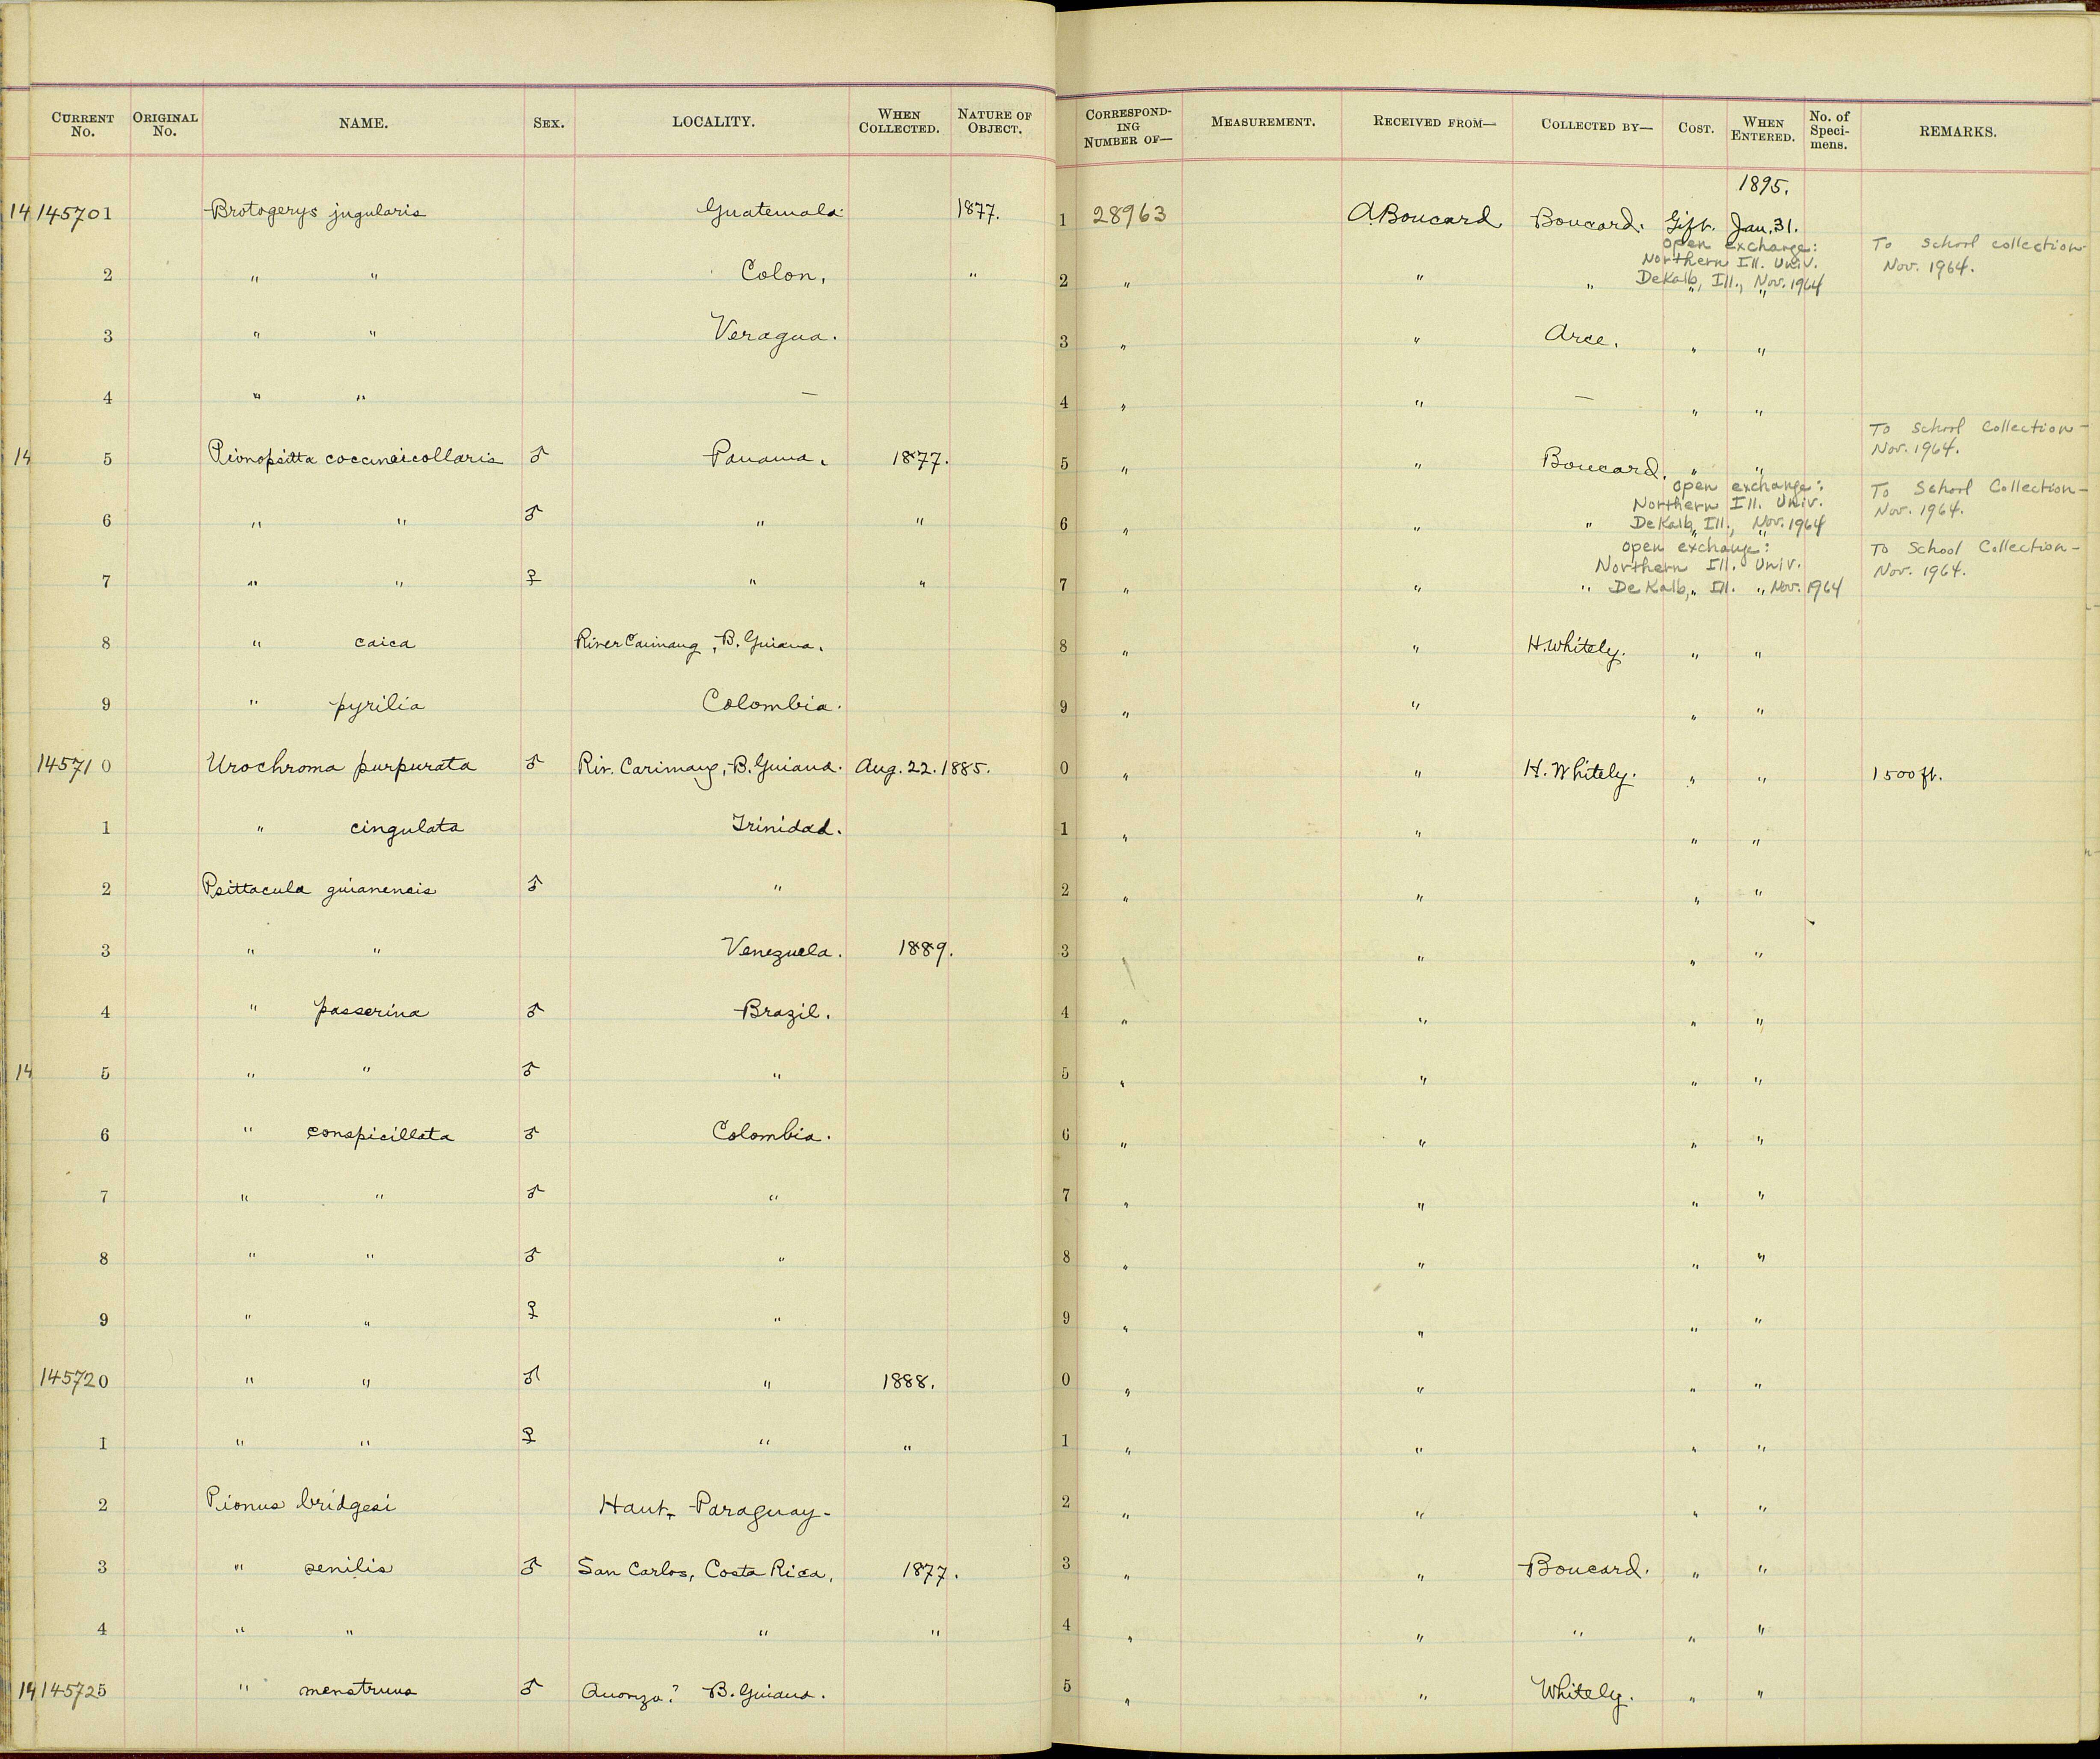 CURRENT No. ORIGINAL No. NAME. SEX. LOCALITY. WHEN COLLECTED. NATURE OF OBJECT. CORRESPONDING NUMBER OF— MEASUREMENT. RECEIVED FROM— COLLECTED BY— COST. WHEN ENTERED. No. of Specimens. REMARKS.
1895.
14 145701 Brotogerys jugularis Guatemala 1877. 1 28963 A. Boucard Boucard. Gift. Jan. 31.
open exchange: To School collection
Northern Ill. Univ. Nov. 1964.
2 " " Colon, " 2 " " " DeKalb, Ill., Nov. 1964 " "
3 " " Veragua. 3 " " Arce. " "
4 " " — 4 " " — " "
To School Collection —
Nov. 1964.
14 5 Pionopsitta coccineicollaris ♂ Panama. 1877. 5 " " Boucard. " "
open exchange: To School Collection —
Northern Ill. Univ. Nov. 1964.
6 " " ♂ " " 6 " " " DeKalb, Ill., Nov. 1964 " "
open exchange: To School Collection —
Northern Ill. Univ. Nov. 1964.
7 " " ♀ " " 7 " " " DeKalb, Ill. Nov. 1964 " "
8 " caica River Carimang, B. Guiana. 8 " " H. Whitely. " "
9 " pyrilia Colombia. 9 " " " "
145710 Urochroma purpurata ♂ Riv. Carimang, B. Guiana. Aug. 22. 1885. 0 " " H. Whitely. " " 1500 ft.
1 " cingulata Trinidad. 1 " " " "
2 Psittacula guianensis ♂ " 2 " " " "
3 " " Venezuela. 1889. 3 " " " "
4 " passerina ♂ Brazil. 4 " " " "
14 5 " " ♂ " 5 " " " "
6 " conspicillata ♂ Colombia. 6 " " " "
7 " " ♂ " 7 " " " "
8 " " ♂ " 8 " " " "
9 " " ♀ " 9 " " " "
145720 " " ♂ " 1888. 0 " " " "
1 " " ♀ " " 1 " " " "
2 Pionus bridgesi Haut-Paraguay- 2 " " " "
3 " senilis ♂ San Carlos, Costa Rica, 1877. 3 " " Boucard. " "
4 " " " " 4 " " " " "
14 145725 " menstruus ♂ ? B. Guiana. 5 " " Whitely. " "